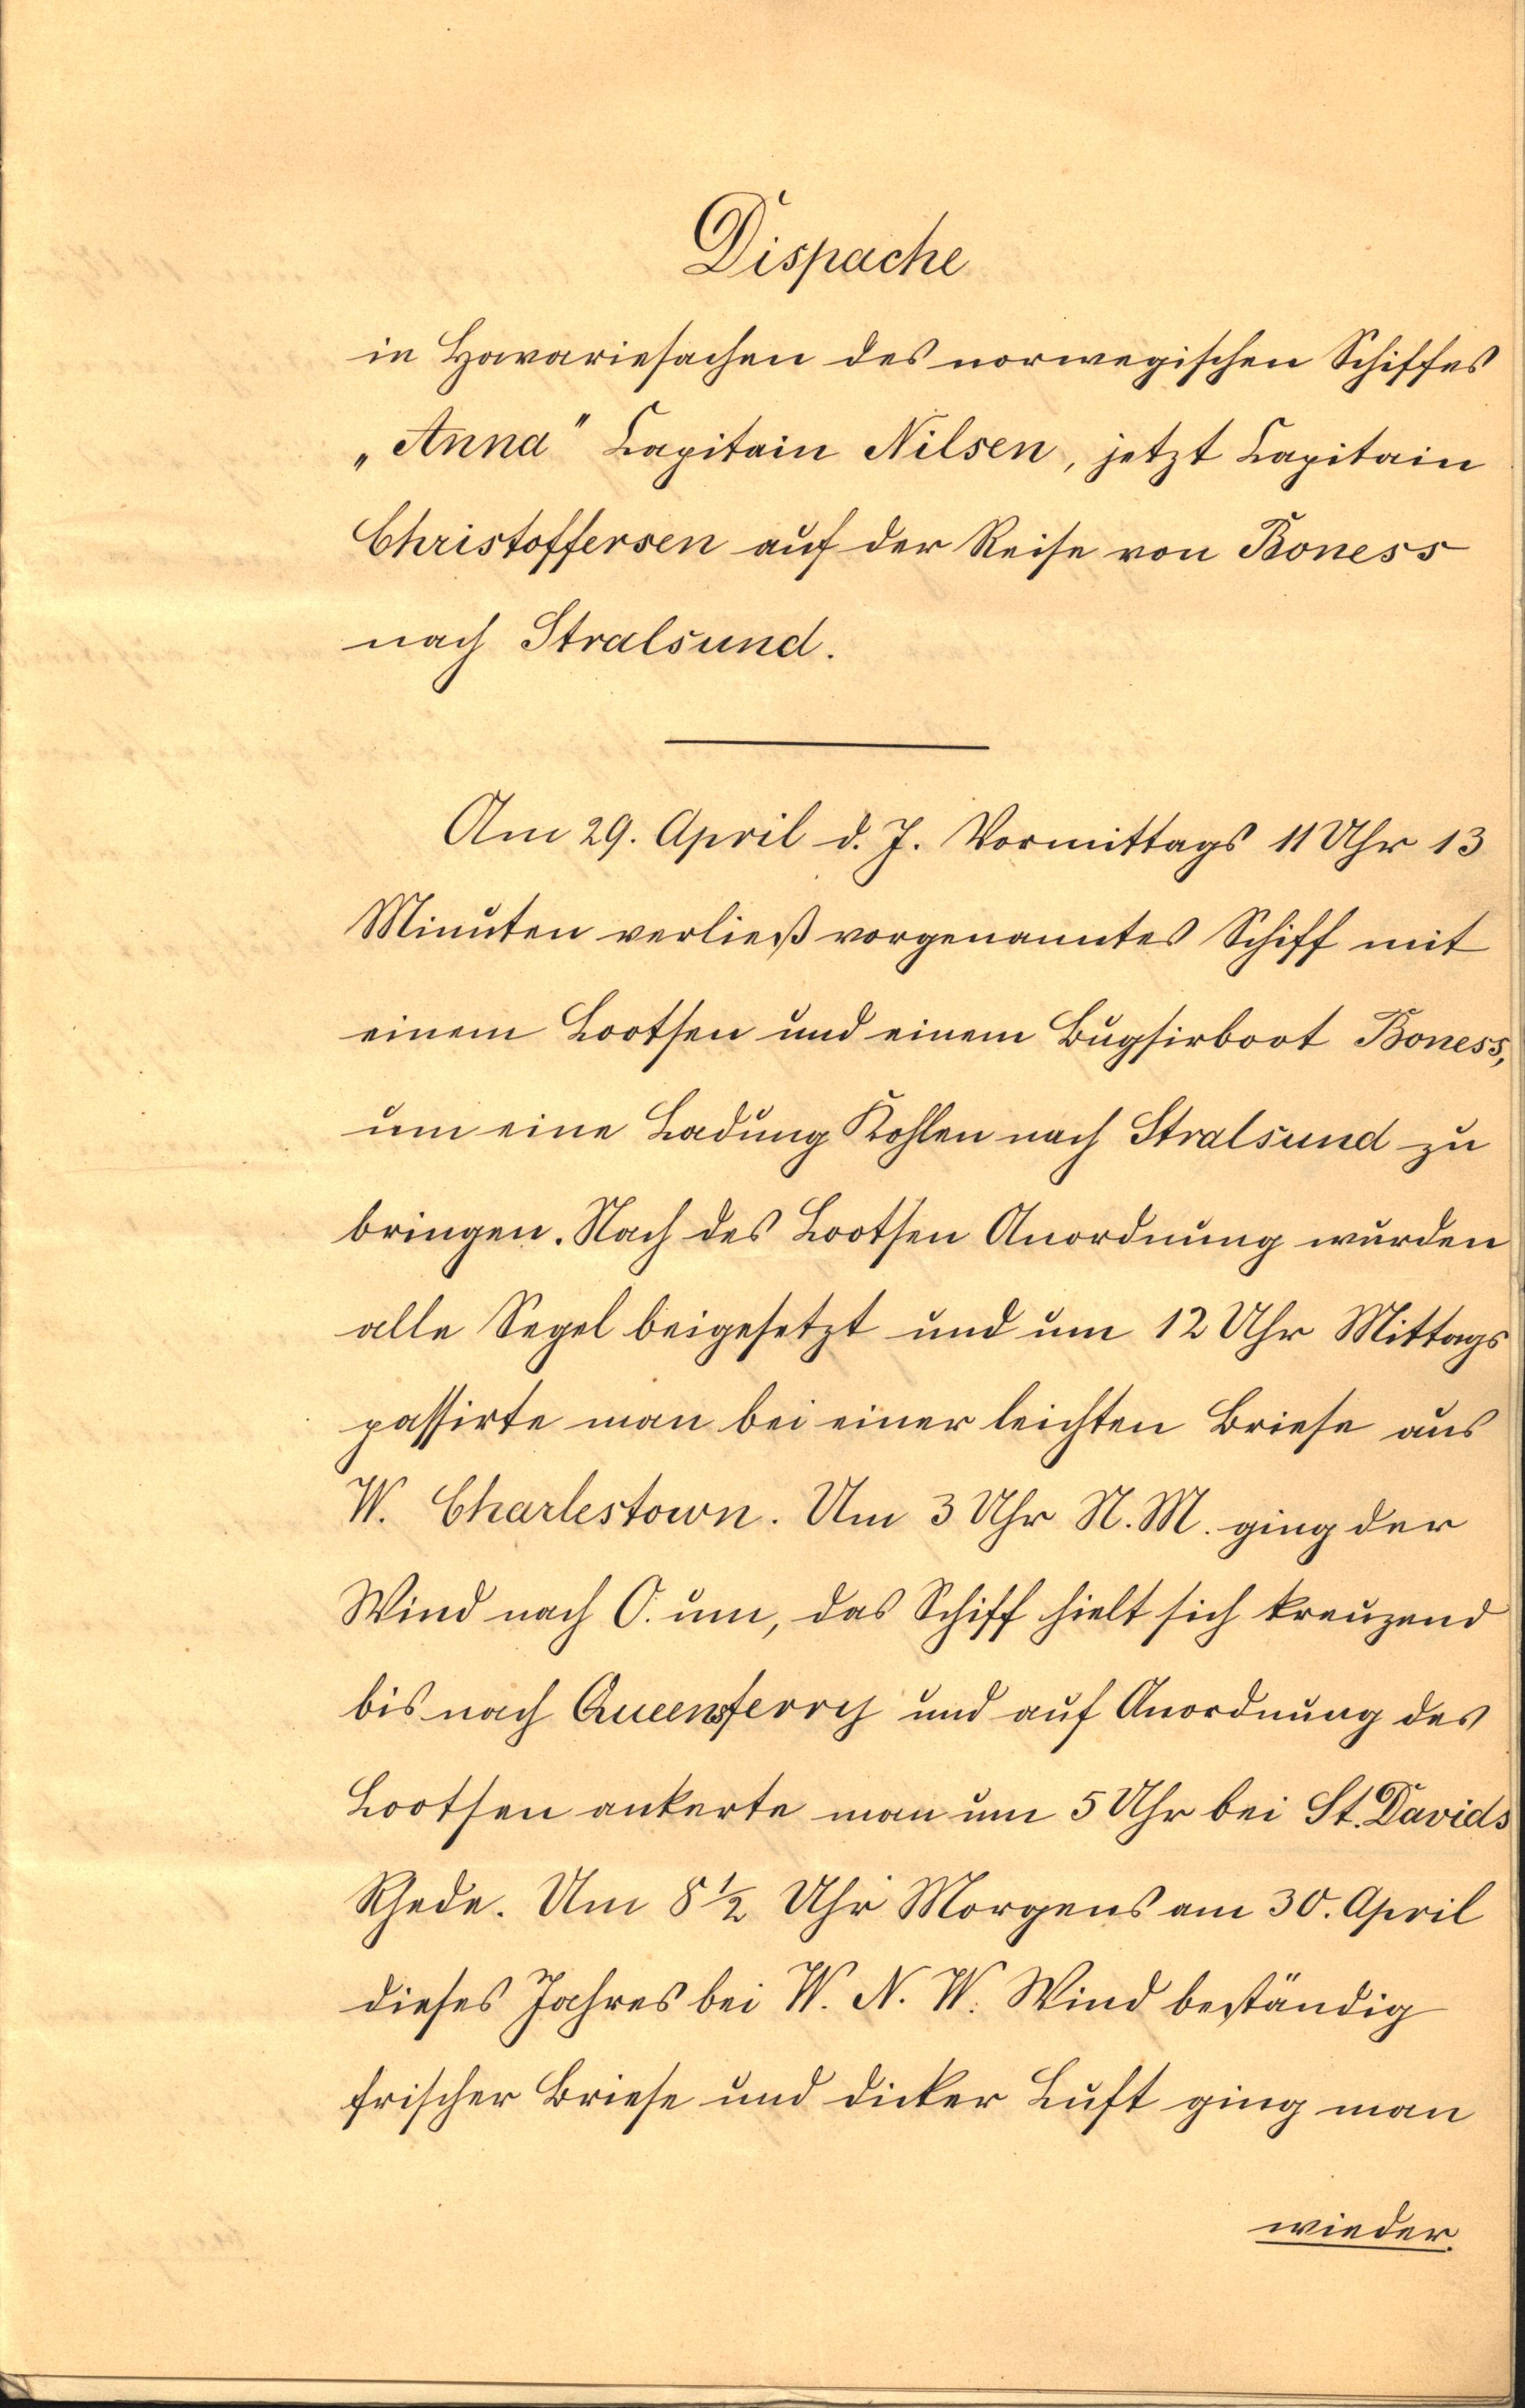 Dispache
in Havariesachen des norwegischen Schiffes
„Anna" Capitain Nilsen, jetzt Capitain
Christoffersen auf der Reise von Boness
nach Stralsund.
Am 29. April d. J. Vormittags 11 Uhr 13
Minuten verließ vorgenanntes Schiff mit
einem Lootsen und einem Bugsirboot Boness,
um eine Ladung Kohlen nach Stralsund zu
bringen. Nach des Lootsen Anordnung wurden
alle Segel beigesetzt und um 12 Uhr Mittags
passirte man bei einer leichten Briese aus
W. Charlestown. Um 3 Uhr N. M. ging der
Wind nach O. um, das Schiff hielt sich kreuzend
bis nach Queensferry und auf Anordnung des
Lootsen ankerte man um 5 Uhr bei St. Davids
Rhede. Um 8 ½ Uhr Morgens am 30. April
dieses Jahres bei W. N. W. Wind beständig
frischer Briese und dicker Luft ging man
wieder